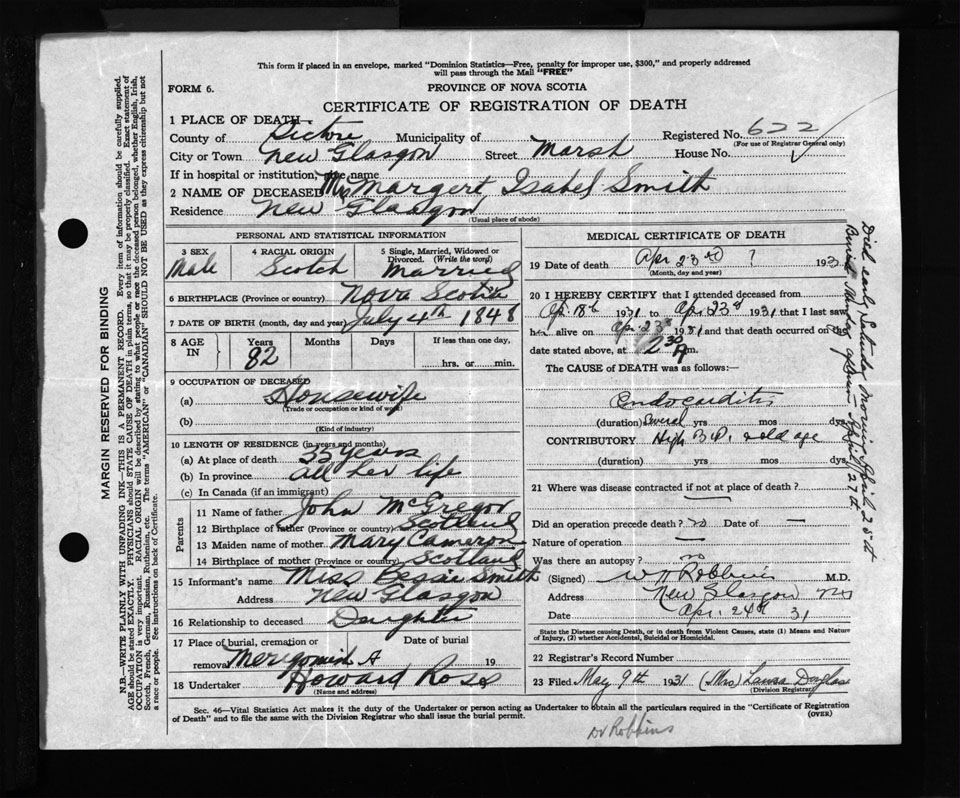 This form if placed in an envelope, marked "Dominion Statistics—Free, penalty for improper use, $300," and properly addressed
will pass through the Mail "FREE"
FORM 6.
PROVINCE OF NOVA SCOTIA
CERTIFICATE OF REGISTRATION OF DEATH
1 PLACE OF DEATH—
County of Pictou Municipality of Registered No. 622
(For use of Registrar General only)
City or Town New Glasgow Street Marsh House No.
If in hospital or institution, give name
2 NAME OF DECEASED Mrs Margert Isabel Smith
Residence New Glasgow
(Usual place of abode)
PERSONAL AND STATISTICAL INFORMATION
3 SEX 4 RACIAL ORIGIN 5 Single, Married, Widowed or
Divorced (Write the word)
Male Scotch Married
6 BIRTHPLACE (Province or country) Nova Scotia
7 DATE OF BIRTH (month, day and year) July 4th 1848
8 AGE IN Years Months Days If less than one day,
82 hrs. or min.
9 OCCUPATION OF DECEASED
(a) Housewife
(Trade or occupation or kind of work)
(b)
(Kind of industry)
10 LENGTH OF RESIDENCE (in years and months)
(a) At place of death 35 years
(b) In province all her life
(c) In Canada (if an immigrant)
Parents
11 Name of father John McGregor
12 Birthplace of father (Province or country) Scotland
13 Maiden name of mother Mary Cameron
14 Birthplace of mother (Province or country) Scotland
15 Informant's name Miss Bessie Smith
Address New Glasgow
16 Relationship to deceased Daughter
17 Place of burial, cremation or Date of burial
removal Merigomish 19
18 Undertaker Howard Ross
(Name and address)
MEDICAL CERTIFICATE OF DEATH
19 Date of death Apr 23rd ? 193
(Month, day and year)
20 I HEREBY CERTIFY that I attended deceased from
Apr. 18th 1931 to Apr 23rd 1931 that I last saw
her alive on Apr. 23rd 1931 and that death occurred on the
date stated above, at 2.30 A m.
The CAUSE of DEATH was as follows:—
Endocarditis
(duration) Several yrs mos dys
CONTRIBUTORY High B.P. & old age
(duration) yrs mos dys
21 Where was disease contracted if not at place of death?
Did an operation precede death? no Date of —
Nature of operation —
Was there an autopsy no
(Signed) W N Robbins M.D.
Address New Glasgow NS
Date Apr. 24th 31
State the Disease causing Death, or in death from Violent Causes, state (1) Means and Nature
of Injury, (2) whether Accidental, Suicidal or Homicidal.
22 Registrar's Record Number
23 Filed May 9th 1931 (Mrs) Laura Douglas
(Division Registrar)
Sec. 46—Vital Statistics Act makes it the duty of the Undertaker or person acting as Undertaker to obtain all the particulars required in the "Certificate of Registration
of Death" and to file the same with the Division Registrar who shall issue the burial permit. (OVER)
Dr Robbins
Died early Saturday Morning April 25th
Buried Monday afternoon April 27th
MARGIN RESERVED FOR BINDING
N.B.—WRITE PLAINLY WITH UNFADING INK—THIS IS A PERMANENT RECORD. Every item of information should be carefully supplied.
AGE should be stated EXACTLY. PHYSICIANS should STATE CAUSE OF DEATH in plain terms, so that it may be properly classified. Exact statement of
OCCUPATION is very important. RACIAL ORIGIN will be described by stating to what people or race the deceased person belonged, whether English, Irish,
Scotch, French, German, Russian, Ruthenian, etc. The terms "AMERICAN" or "CANADIAN" SHOULD NOT BE USED as they express citizenship but not
a race or people. See instructions on back of Certificate.